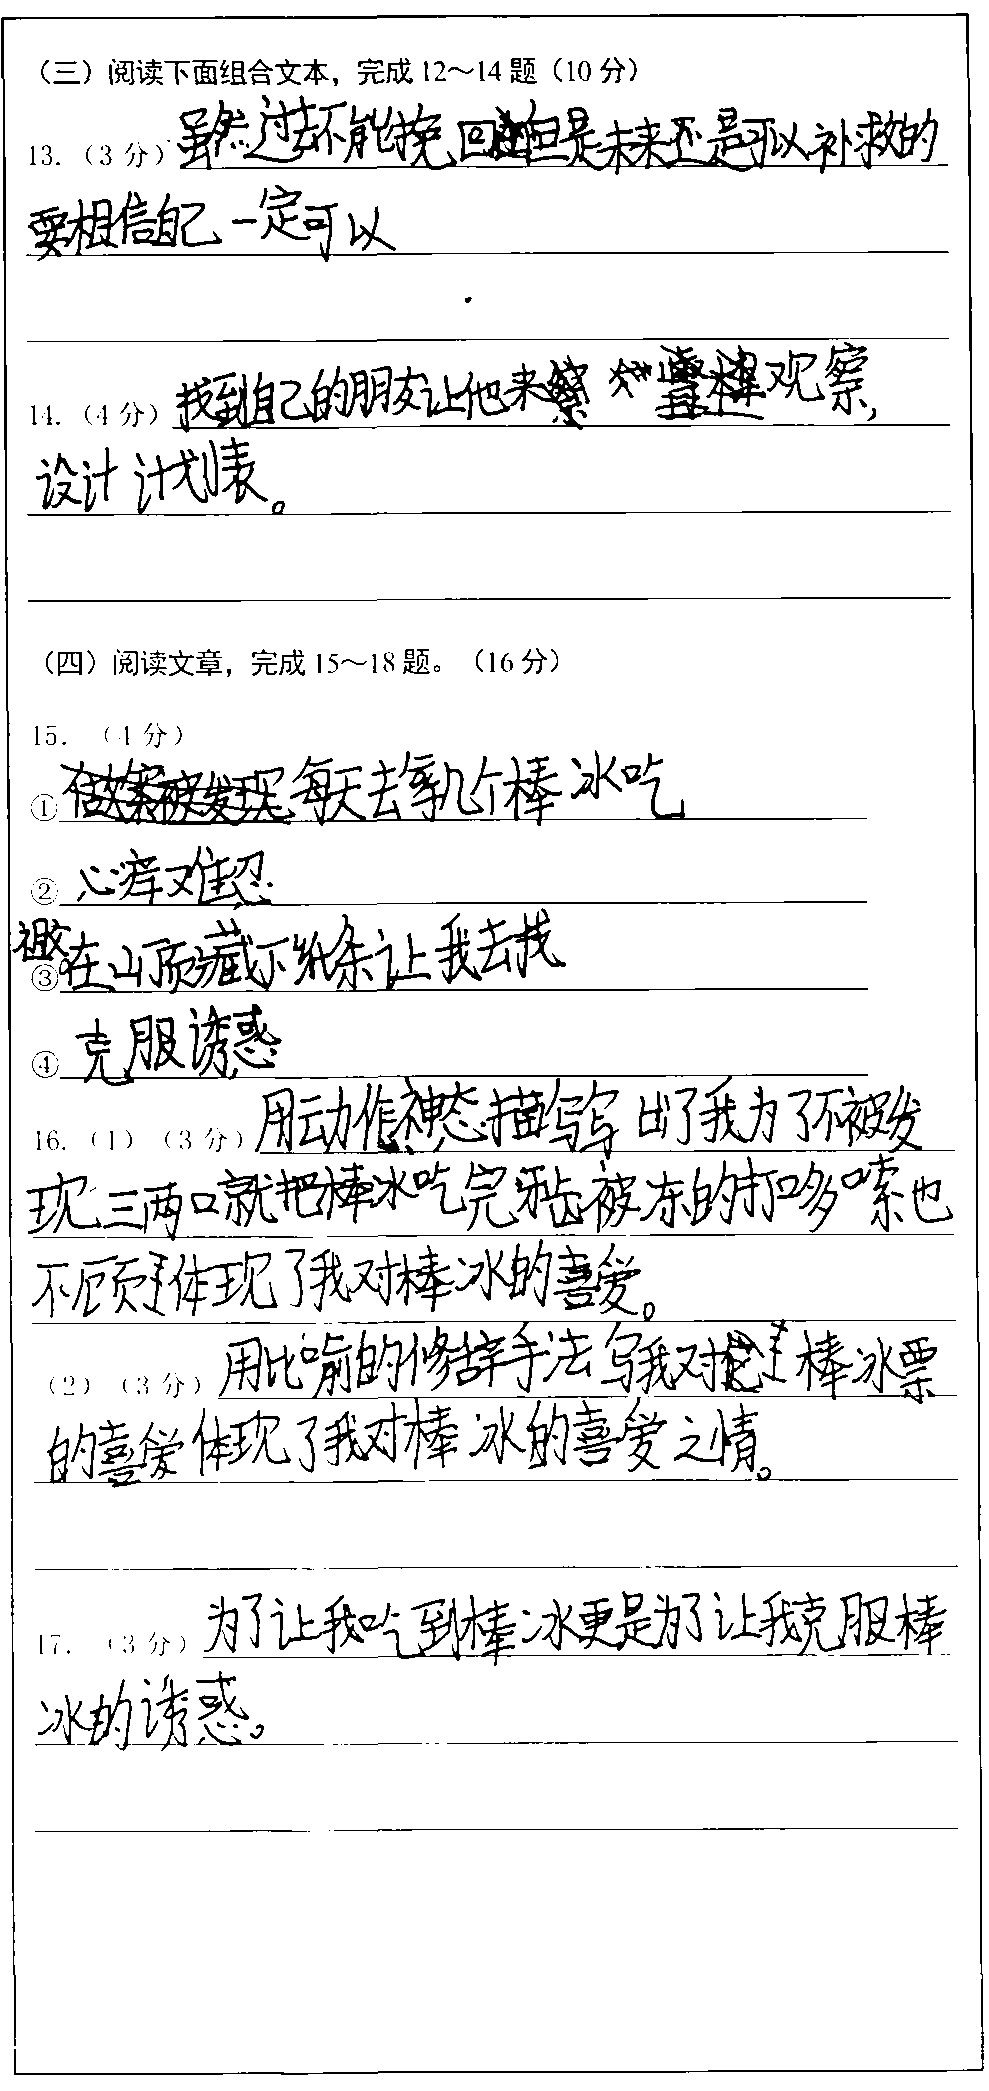 （三）阅读下面组合文本，完成12～14题（10分）
13.（3分）虽然过去不能挽回但是未来还是可以补救的
要相信自己一定可以
14.（4分）找到自己的朋友让他来观察，
设计计划表。
（四）阅读文章，完成15～18题。（16分）
15.（4分）
①每天去拿几个棒冰吃
②心痒难忍
③在山顶藏下纸条让我去找
④克服诱惑
16.（1）（3分）用动作神态描写写出了我为了不被发
现三两口就把棒冰吃完牙齿被冻的打哆嗦也
不顾体现了我对棒冰的喜爱。
（2）（3分）用比喻的修辞手法写我对棒冰票
的喜爱体现了我对棒冰的喜爱之情。
17.（3分）为了让我吃到棒冰更是为了让我克服棒
冰的诱惑。